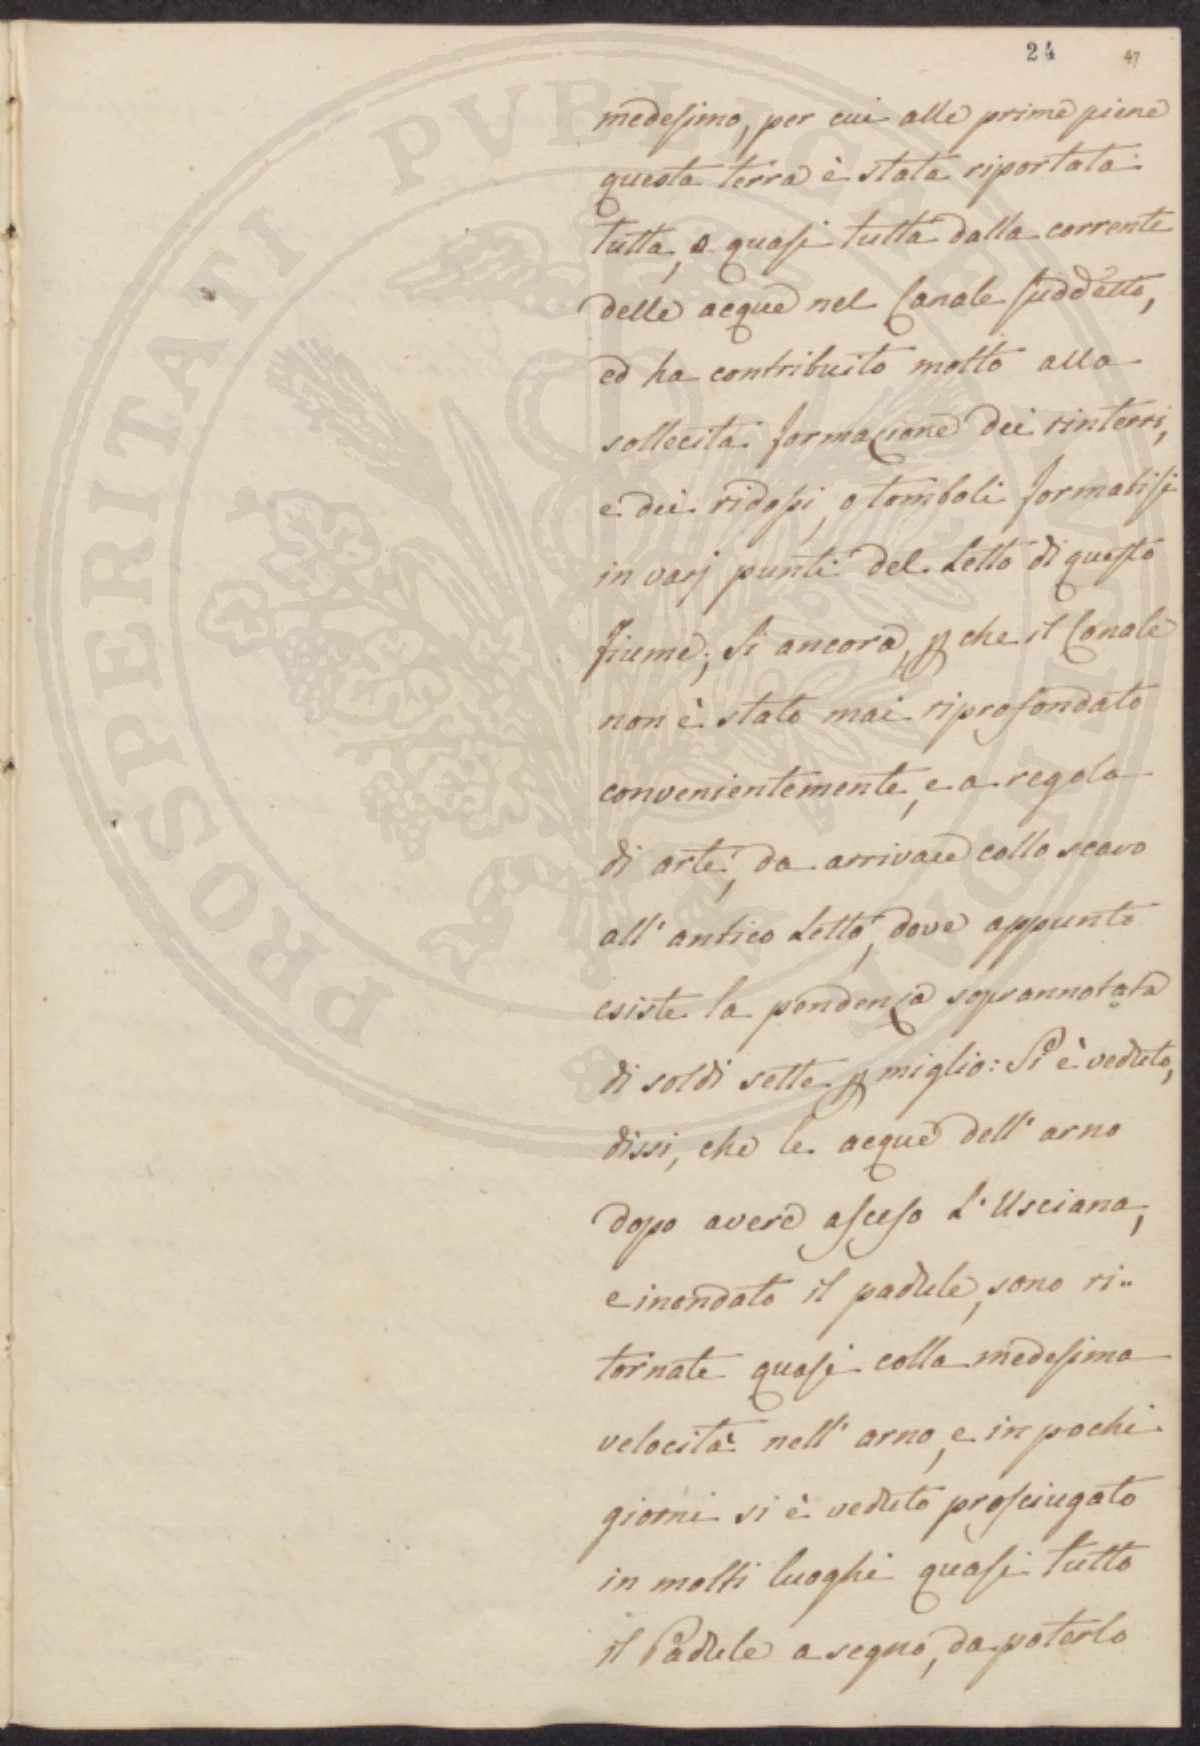 24 47
medesimo, per cui alle prime piene
questa terra è stata riportata
tutta, o quasi tutta dalla corrente
delle acque nel Canale suddetto,
ed ha contribuito molto alla
sollecita formazione dei rinterri,
e dei ridossi, o tomboli formatisi
in varj punti del Letto di questo
fiume; Si ancora, p che il Canale
non è stato mai riprofondato
convenientemente, e a regola
di arte, da arrivare collo scavo
all' antico Letto, dove appunto
esiste la pendenza soprannotata
di soldi sette p miglio: Si è veduto,
dissi, che le acque dell' arno
dopo avere asceso L' Usciana,
e inondato il padule, sono ri..
tornate quasi colla medesima
velocità nell' arno, e in pochi
giorni si è veduto prosciugato
in molti luoghi quasi tutto
il Padule a segno, da poterlo
PROSPERITATI PUBLICAE